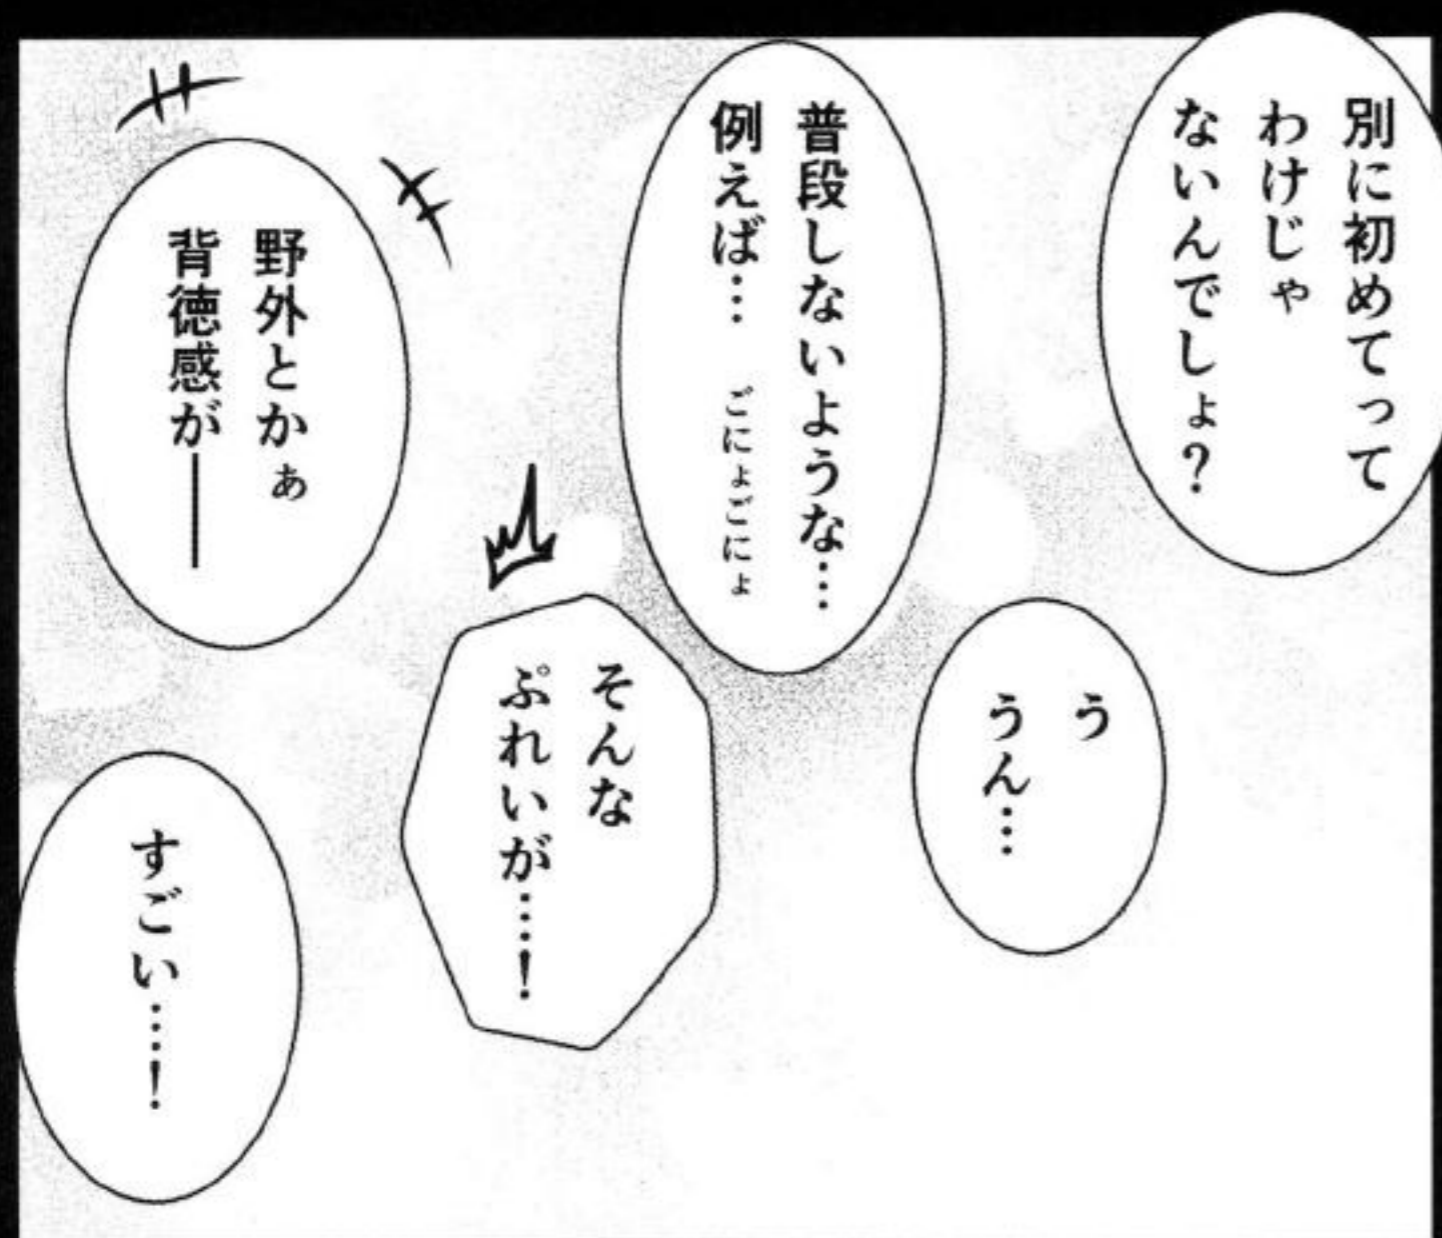 別に初めてって
わけじゃ
ないんでしょ？
う
うん…
普段しないような…
例えば… ごにょごにょ
そんな
ぷれいが……！
野外とかぁ
背徳感が――
すごい……！